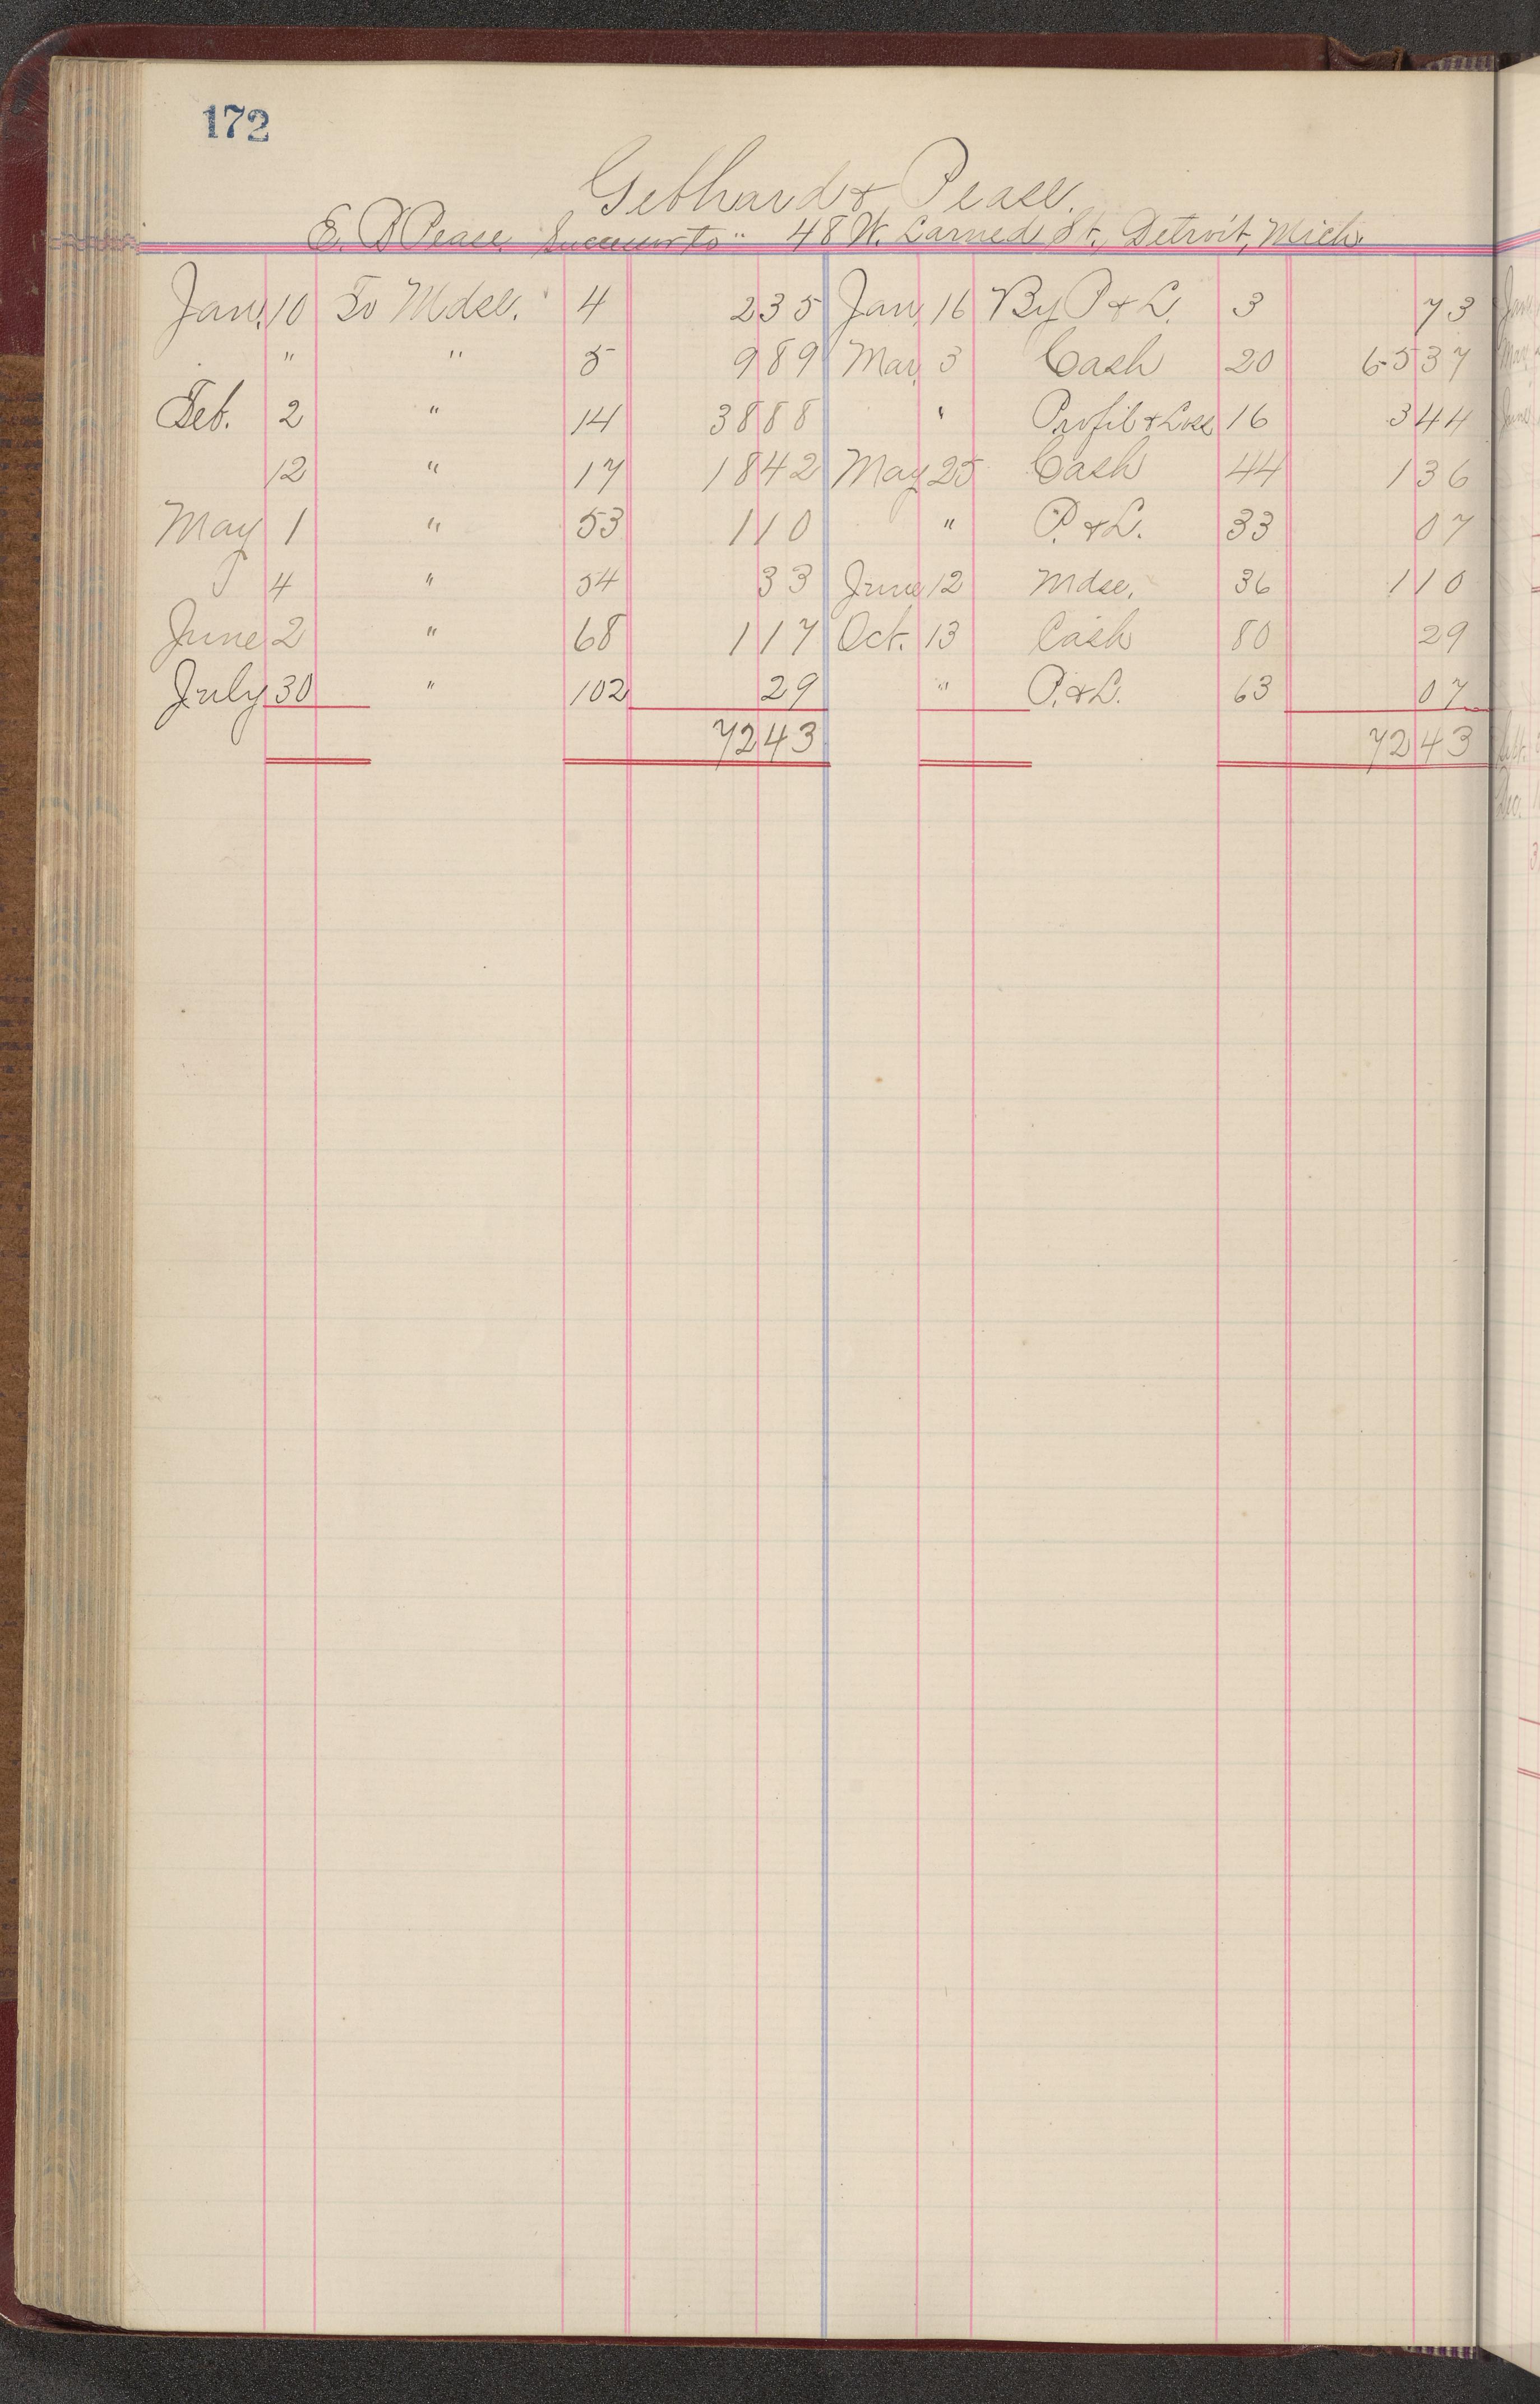 172
Gebhard & Pease.
E. D. Pease Successor to " 48 W. Larned St., Detroit, Mich.
Jan. 10 To Mdse. 4 2 35 Jan. 16 By P & L. 3 73
" " 5 9 89 Mar. 3 Cash 20 65 37
Feb. 2 " 14 38 88 " Profit & Loss 16 3 44
12 " 17 18 42 May 25 Cash 44 1 36
May 1 " 53 1 10 " P. & L. 33 07
4 " 54 33 June 12 Mdse. 36 1 10
June 2 " 68 1 17 Oct. 13 Cash 80 29
July 30 " 102 29 " P. & L. 63 07
72 43 72 43